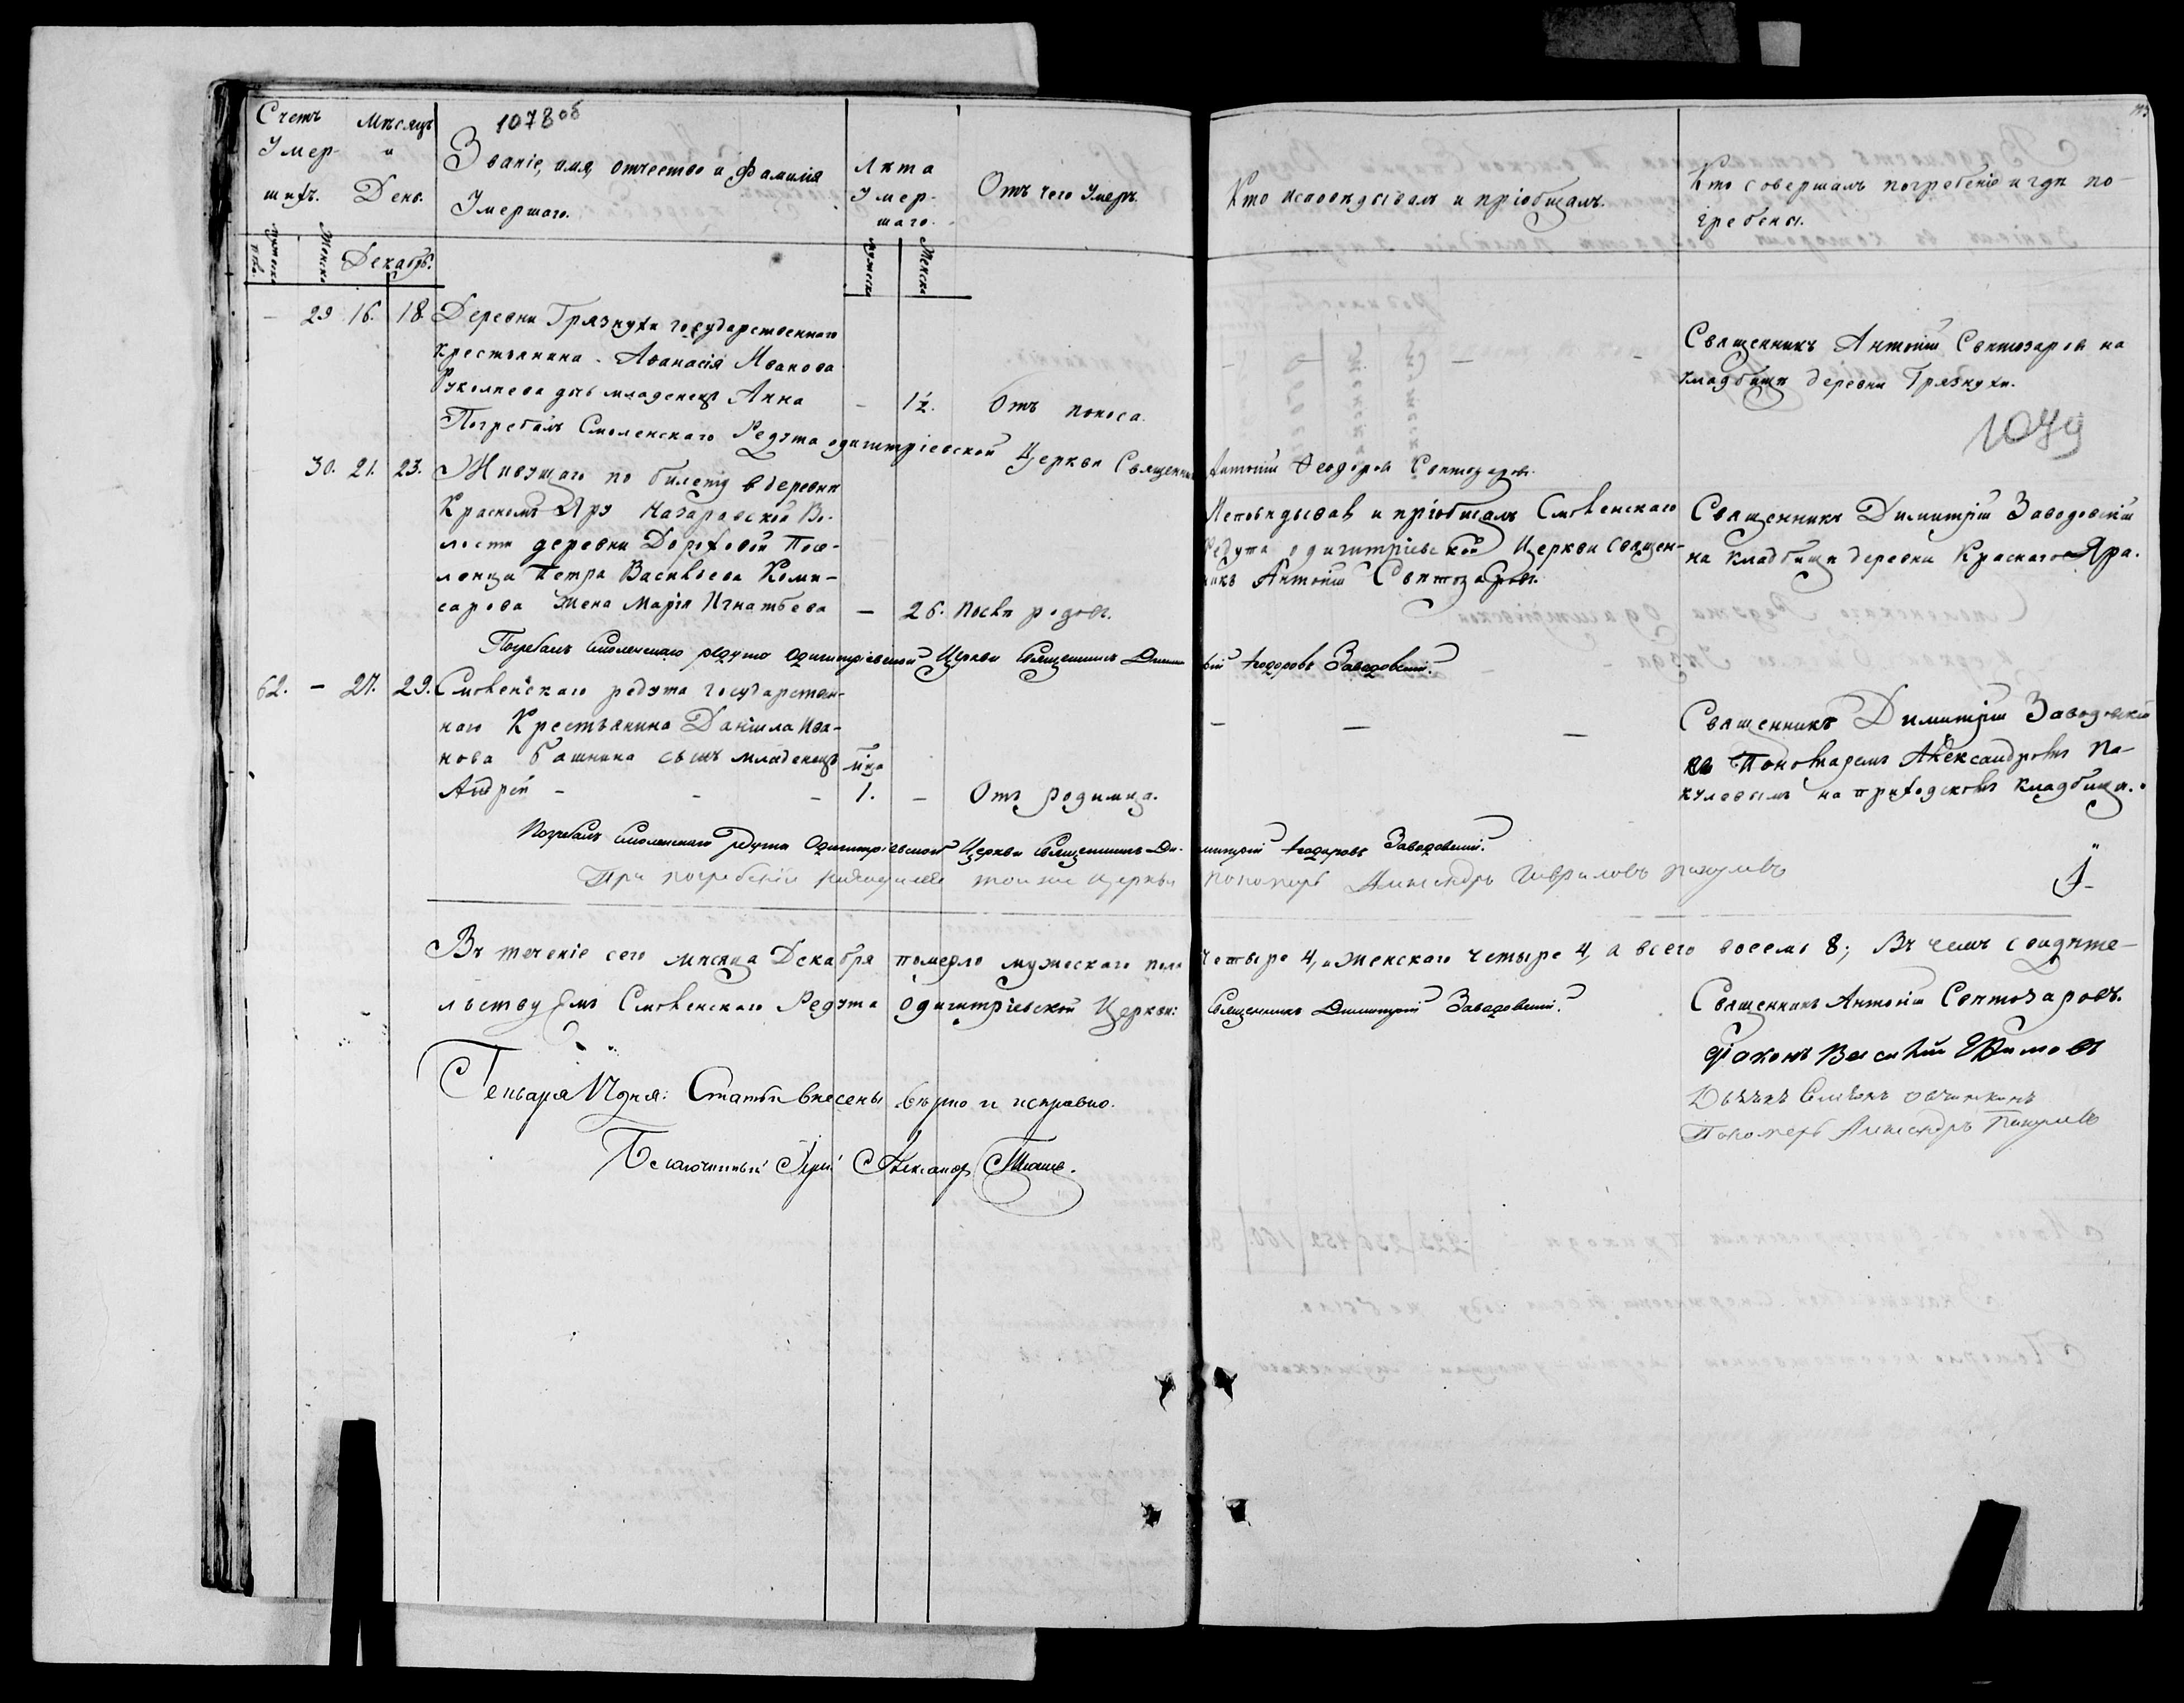 1078 об
Счетъ Умер-шихъ.
Мѣсяцъ и День.
Званіе, имя, отчество и Фамилія Умершаго.
Лѣта Умер-шаго.
Отъ чего Умеръ.
Кто исповѣдывалъ и пріобщалъ.
Кто совершалъ погребеніе и гдѣ по-
гребены.
Женска
Декабрь.
Женска
29 16. 18. Деревни Грязнухи государственнаго
Крестьянина Аѳанасія Иванова
дчь младенецъ Анна
– 1½. Отъ поноса.
Священникъ Антоній Свѣтозаровъ на
кладбищѣ деревни Грязнухи.
1079
Погребалъ Смоленскаго Редута одигитріевской Церкви Священникъ Антоній Феодоровъ Свѣтозаровъ.
30. 21. 23. Живущаго по билету в деревнѣ
Красномъ Яру Назаровской Во-
лости деревни Дороховой Посе-
ленца Петра Васильева Коми-
сарова Жена Марія Игнатьева – 26. Послѣ родовъ.
Исповѣдывалъ и пріобщалъ Смоленскаго
Редута одигитріевской Церкви Священ-
никъ Антоній Свѣтозаровъ.
Священникъ Димитрій Заводовскій
на кладбищѣ деревни Краснаго Яра.
Погребалъ Смоленскаго редута Одигитріевской Церкви Священникъ Димитрій Феодоровъ Заводовскій.
62. – 27. 29. Смоленскаго редута государствен-
наго Крестьянина Даніила Ива-
нова Башкина сынъ младенецъ
Андрей – – – 1. – Отъ родимца.
– – –
Священникъ Димитрій Заводовскій
съ Пономаремъ Александромъ Па-
кулевымъ на приходскомъ кладбищѣ.
Погребалъ Смоленскаго редута Одигитріевской Церкви Священникъ Димитрій Феодоровъ Заводовскій.
При погребеніи находился тойже церкви пономарь Александръ Гавриловъ Пакулевъ
Въ теченіе сего мѣсяца Декабря померло мужескаго пола четыре 4, а женскаго четыре 4, а всего восемь 8; Въ чемъ свидѣте-
льствуемъ Смоленскаго Редута Одигитріевской Церкви: Священникъ Димитрій Заводовскій.
Священникъ Антоній Свѣтозаровъ.
Діаконъ Василій
Пономарь Александръ Пакулевъ
Генваря дня: Статьи внесены вѣрно и исправно.
Благочинный Іерей Александръ